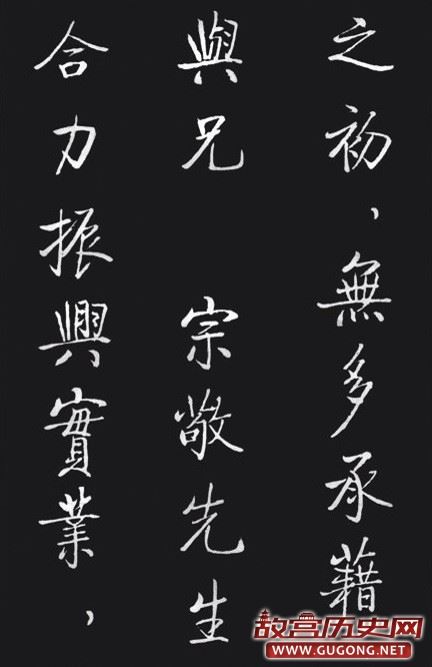 之初，無多承藉
與兄 宗敬先生
合力振興實業，
故宫历史网
WWW.GUGONG.NET